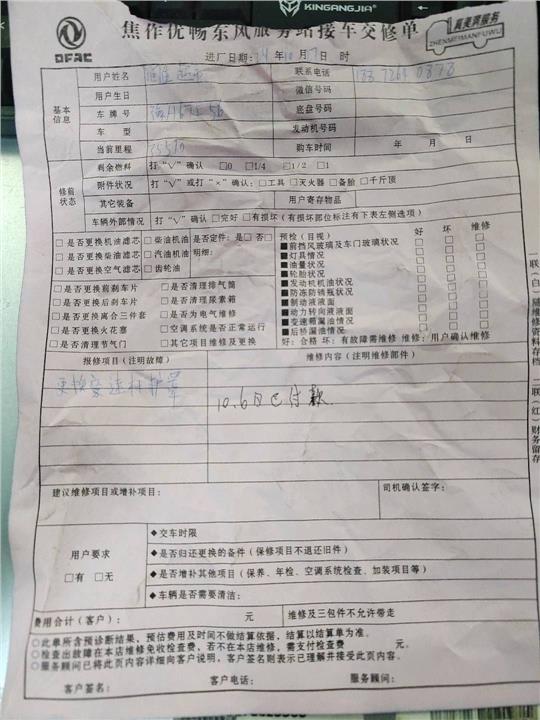 KINGANGJIA
DFAC
焦作优畅东风服务站接车交修单
真美满服务
ZHENMEIMANFUWU
进厂日期: 年 10 月 7 日 时
用户姓名 联系电话
基本信息
用户生日 微信号码
车牌号 底盘号码
车型 发动机号码
当前里程 购车时间 年 月 日
修前状态
剩余燃料 打“√”确认 □0 □1/4 □1/2 □1
附件状况 打“√”或打“×”确认:□工具 □灭火器 □备胎 □千斤顶
其它装备 用户寄存物品
车辆外部情况 打“√”确认 □完好 □有损坏(有损坏部位标注右下表左侧选项)
□是否更换机油滤芯 □柴油机油 是否定件:是□否□
□是否更换柴油滤芯 □汽油机油 明细:
□是否更换空气滤芯 □齿轮油
□是否更换前刹车片 □是否清理排气筒
□是否更换后刹车片 □是否清理尿素箱
□是否更换离合三件套 □是否为电气维修
□是否更换火花塞 □空调系统是否正常运行
□是否清理节气门 □其它项目维修及更换
预检(目视) 好 坏 维修
■前挡风玻璃及车门玻璃状况 □ □ □
■灯具情况 □ □ □
■油量状况 □ □ □
■轮胎状况 □ □ □
■发动机机油情况 □ □ □
■防冻防锈瓶状况 □ □ □
■制动液液面 □ □ □
■动力转向液液面 □ □ □
■变速箱漏油情况 □ □ □
■后桥漏油情况 □ □ □
好:合格 坏:有故障需维修 维修:用户确认维修
报修项目(注明故障) 维修内容(注明维修部件)
10.6日已付款
建议维修项目或增补项目: 司机确认签字:
用户要求
□有 □无
◆交车时限
◆是否归还更换的备件(保修项目不退还旧件)
◆是否增补其他项目(保养、年检、空调系统检查、加装项目等)
◆车辆是否需要清洁:
费用合计(客户): 元 维修及三包件不允许带走
○此单所含预诊断结果,预估费用及时间不做结算依据,结算以结算单为准。
○检查出故障在本店维修免收检查费,若不在本店维修,需支付检查费 元。
○服务顾问已将此页内容详细向客户说明,客户签名则表示已理解并接受此页内容。
客户签名: 客户电话: 服务顾问:
一联(白)随维修资料存档 二联(红)财务留存